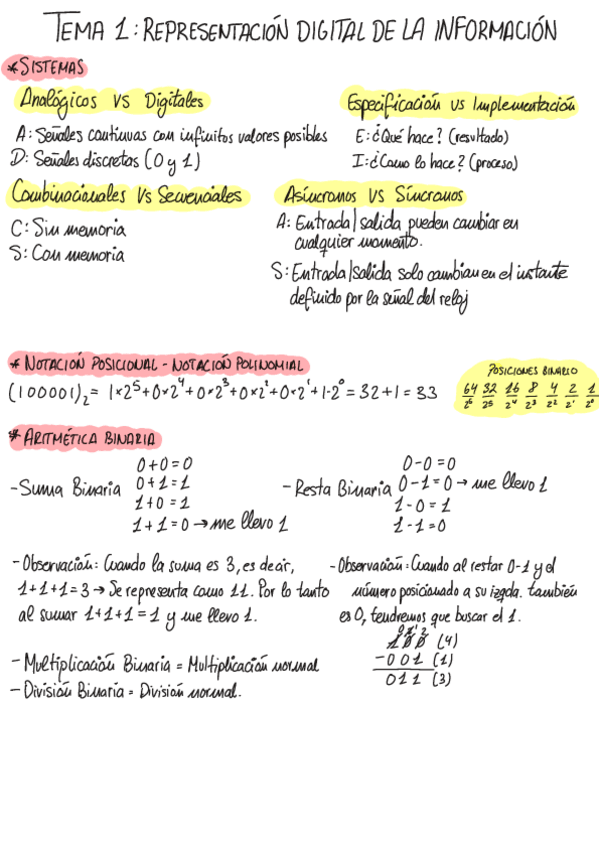 TEMA 1: REPRESENTACIÓN DIGITAL DE LA INFORMACIÓN
* SISTEMAS
Analógicos vs Digitales
A: Señales continuas con infinitos valores posibles
D: Señales discretas (0 y 1)
Especificación vs Implementación
E: ¿Qué hace? (resultado)
I: ¿Como lo hace? (proceso)
Combinacionales Vs Secuenciales
C: Sin memoria
S: Con memoria
Asíncronos VS Síncronos
A: Entrada/salida pueden cambiar en
cualquier momento.
S: Entrada/salida solo cambian en el instante
definido por la señal del reloj
* NOTACIÓN POSICIONAL - NOTACIÓN POLINOMIAL
(100001)₂ = 1×2⁵+0×2⁴+0×2³+0×2²+0×2¹+1·2⁰ = 32+1 = 33
POSICIONES BINARIO
64 32 16 8 4 2 1
2⁶ 2⁵ 2⁴ 2³ 2² 2¹ 2⁰
* ARITMÉTICA BINARIA
- Suma Binaria
0+0=0
0+1=1
1+0=1
1+1=0 → me llevo 1
- Resta Binaria
0-0=0
0-1=0 → me llevo 1
1-0=1
1-1=0
- Observación: Cuando la suma es 3, es decir,
1+1+1=3 → Se representa como 11. Por lo tanto
al sumar 1+1+1=1 y me llevo 1.
- Observación: Cuando al restar 0-1 y el
número posicionado a su izqda. también
es 0, tendremos que buscar el 1.
0 1 2
100 (4)
-001 (1)
011 (3)
- Multiplicación Binaria = Multiplicación normal
- División Binaria = División normal.